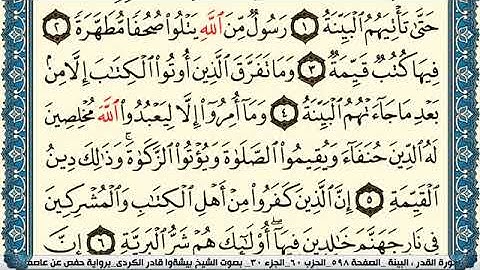 حَتَّىٰ تَأْتِيَهُمُ ٱلْبَيِّنَةُ ١ رَسُولٌ مِّنَ ٱللَّهِ يَتْلُوا۟ صُحُفًا مُّطَهَّرَةً ٢
فِيهَا كُتُبٌ قَيِّمَةٌ ٣ وَمَا تَفَرَّقَ ٱلَّذِينَ أُوتُوا۟ ٱلْكِتَـٰبَ إِلَّا مِنۢ
بَعْدِ مَا جَآءَتْهُمُ ٱلْبَيِّنَةُ ٤ وَمَآ أُمِرُوٓا۟ إِلَّا لِيَعْبُدُوا۟ ٱللَّهَ مُخْلِصِينَ
لَهُ ٱلدِّينَ حُنَفَآءَ وَيُقِيمُوا۟ ٱلصَّلَوٰةَ وَيُؤْتُوا۟ ٱلزَّكَوٰةَ ۚ وَذَٰلِكَ دِينُ
ٱلْقَيِّمَةِ ٥ إِنَّ ٱلَّذِينَ كَفَرُوا۟ مِنْ أَهْلِ ٱلْكِتَـٰبِ وَٱلْمُشْرِكِينَ
فِى نَارِ جَهَنَّمَ خَـٰلِدِينَ فِيهَآ ۚ أُو۟لَـٰٓئِكَ هُمْ شَرُّ ٱلْبَرِيَّةِ ٦ إِنَّ
ورة القدر ، البينة _الصفحة ٥٩٨_الحزب ٦٠_الجزء ٣٠_ بصوت الشيخ بيشةوا قادر الكردى_برواية حفص عن عاصم